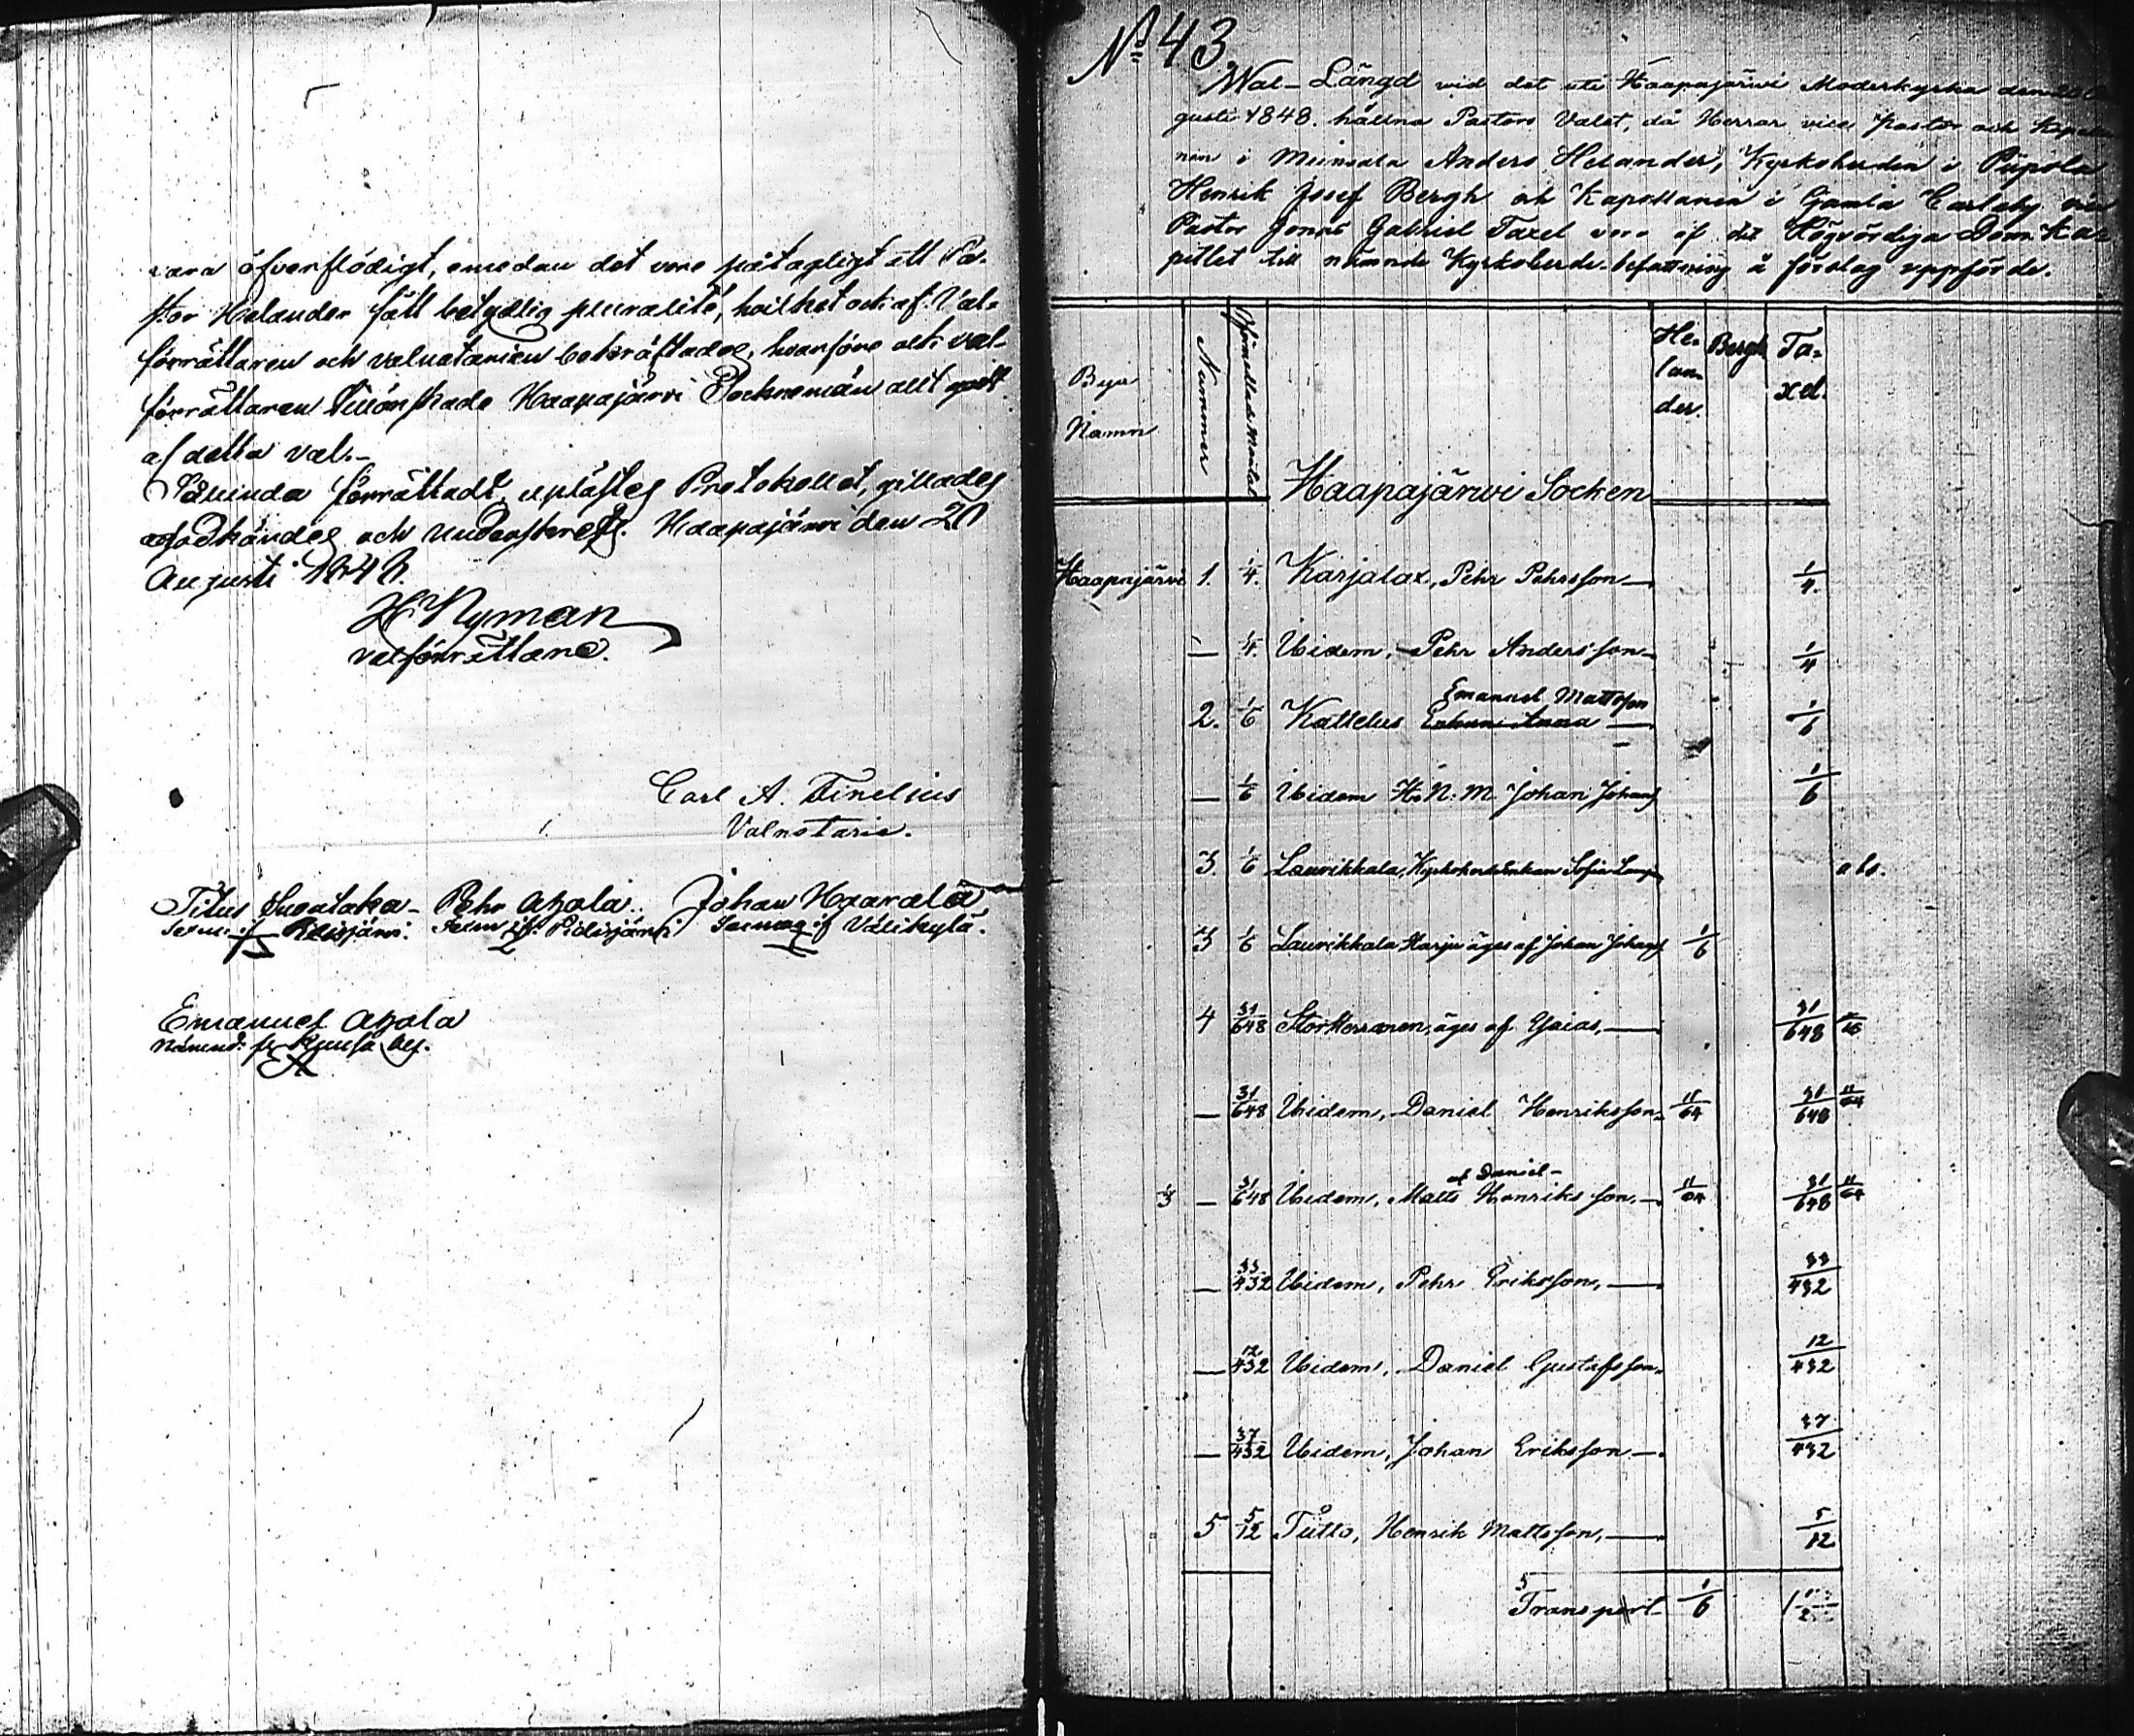 vara öfverflödigt, emedan det vore påtagligt att Pa-
stor Helander fått betydlig pluralité, hvilket ock af Val-
förrättaren och valnotarien bekräftades, hvarföre ock val-
förrättaren tillönskade Haapajärvi Sockneman allt godt
af detta val.-
Sålunda förrättadt, uplästes Protokollet, gillades
godkändes och underskrefs. Haapajärvi den 20
Augusti 1848.
H Nyman
valförrättare.
Carl A. Finelius
Valnotarie.
Titus Pehr Ahola. Johan Haarala
Reisjärvi. Pidisjärvi Välikylä.
Emanuel Ahola
Nämnd.
No 43.
Wal-Längd wid det uti Haapajärwi Moderkyrka den
gusti 1848. hållna Pastors Valet, då Herrar vice Pastor och Kapella
nen i Munsala Anders Helander, Kyrkoherden i Püpola
Henrik Josef Bergh och Kapellanen i Gamla Carleby vice
Pastor Jonas Gabriel Taxel voro af det Högvördiga Dom Ka-
pitlet till nämnde Kyrkoherde-befattning å förslag uppförde.
Byar Namn Nummer Oförmedlade Mantal He-lan-der. Bergh Ta-xel.
Haapajärwi Socken
Haapajärvi 1. 1/4. Karjalax, Pehr Pehrsson — 1/4.
— 1/4. Ibidem, Pehr Andersson — 1/4
Emanuel Mattsson
2. 1/6 Kattelus — 1/6
— 1/6 Ibidem H. N. M. Johan Johans 1/6
3. 1/6 Laurikkala, Kyrkoherde Enkan Sofia abs.
3 1/6 Laurikkala Harju äges af Johan Johans 1/6
4 31/648 Storkorvanen, äges af Esaias, — 31/648
— 31/648 Ibidem, Daniel Henriksson — 11/64 31/648 11/64
af Daniel —
1/3 — 31/648 Ibidem, Matts Henriksson, — 11/64 31/648 11/64
— 33/432 Ibidem, Pehr Eriksson, — 33/432
— 12/432 Ibidem, Daniel Gustafsson, 12/432
— 37/432 Ibidem, Johan Eriksson — 37/432
5 5/12 Tütto, Henrik Mattsson, — 5/12
Transport 1/6